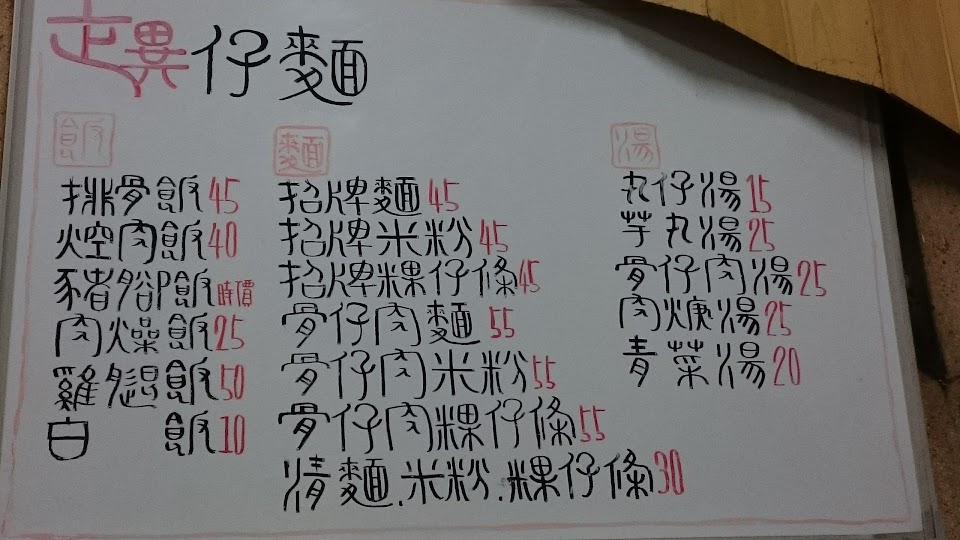 走異仔麵
飯
排骨飯45
焢肉飯40
豬腳飯時價
肉燥飯25
雞腿飯50
白飯10
麵
招牌麵45
招牌米粉45
招牌粿仔條45
骨仔肉麵55
骨仔肉米粉55
骨仔肉粿仔條55
清麵.米粉.粿仔條30
湯
丸仔湯15
芋丸湯25
骨仔肉湯25
肉焿湯25
青菜湯20